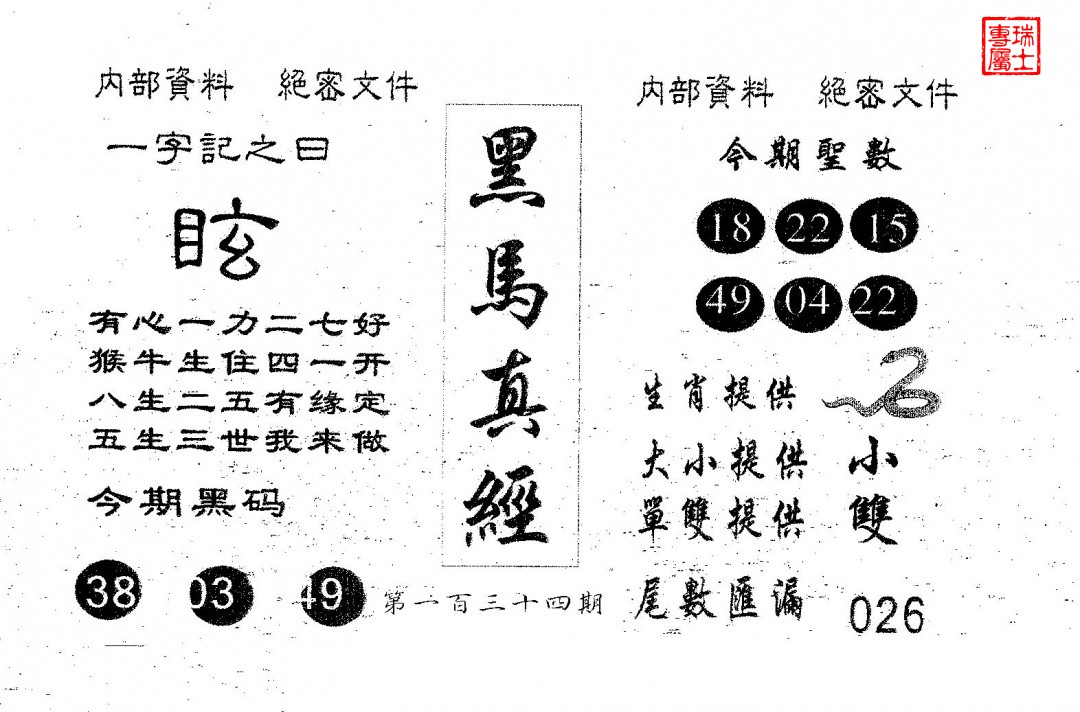 瑞士
專屬
内部資料 絕密文件
一字記之曰
眩
有心一力二七好
猴牛生住四一开
八生二五有缘定
五生三世我来做
今期黑码
38 03 49
黑馬真經
第一百三十四期
内部資料 絕密文件
今期聖數
18 22 15
49 04 22
生肖提供
大小提供 小
單雙提供 雙
尾數匯漏 026